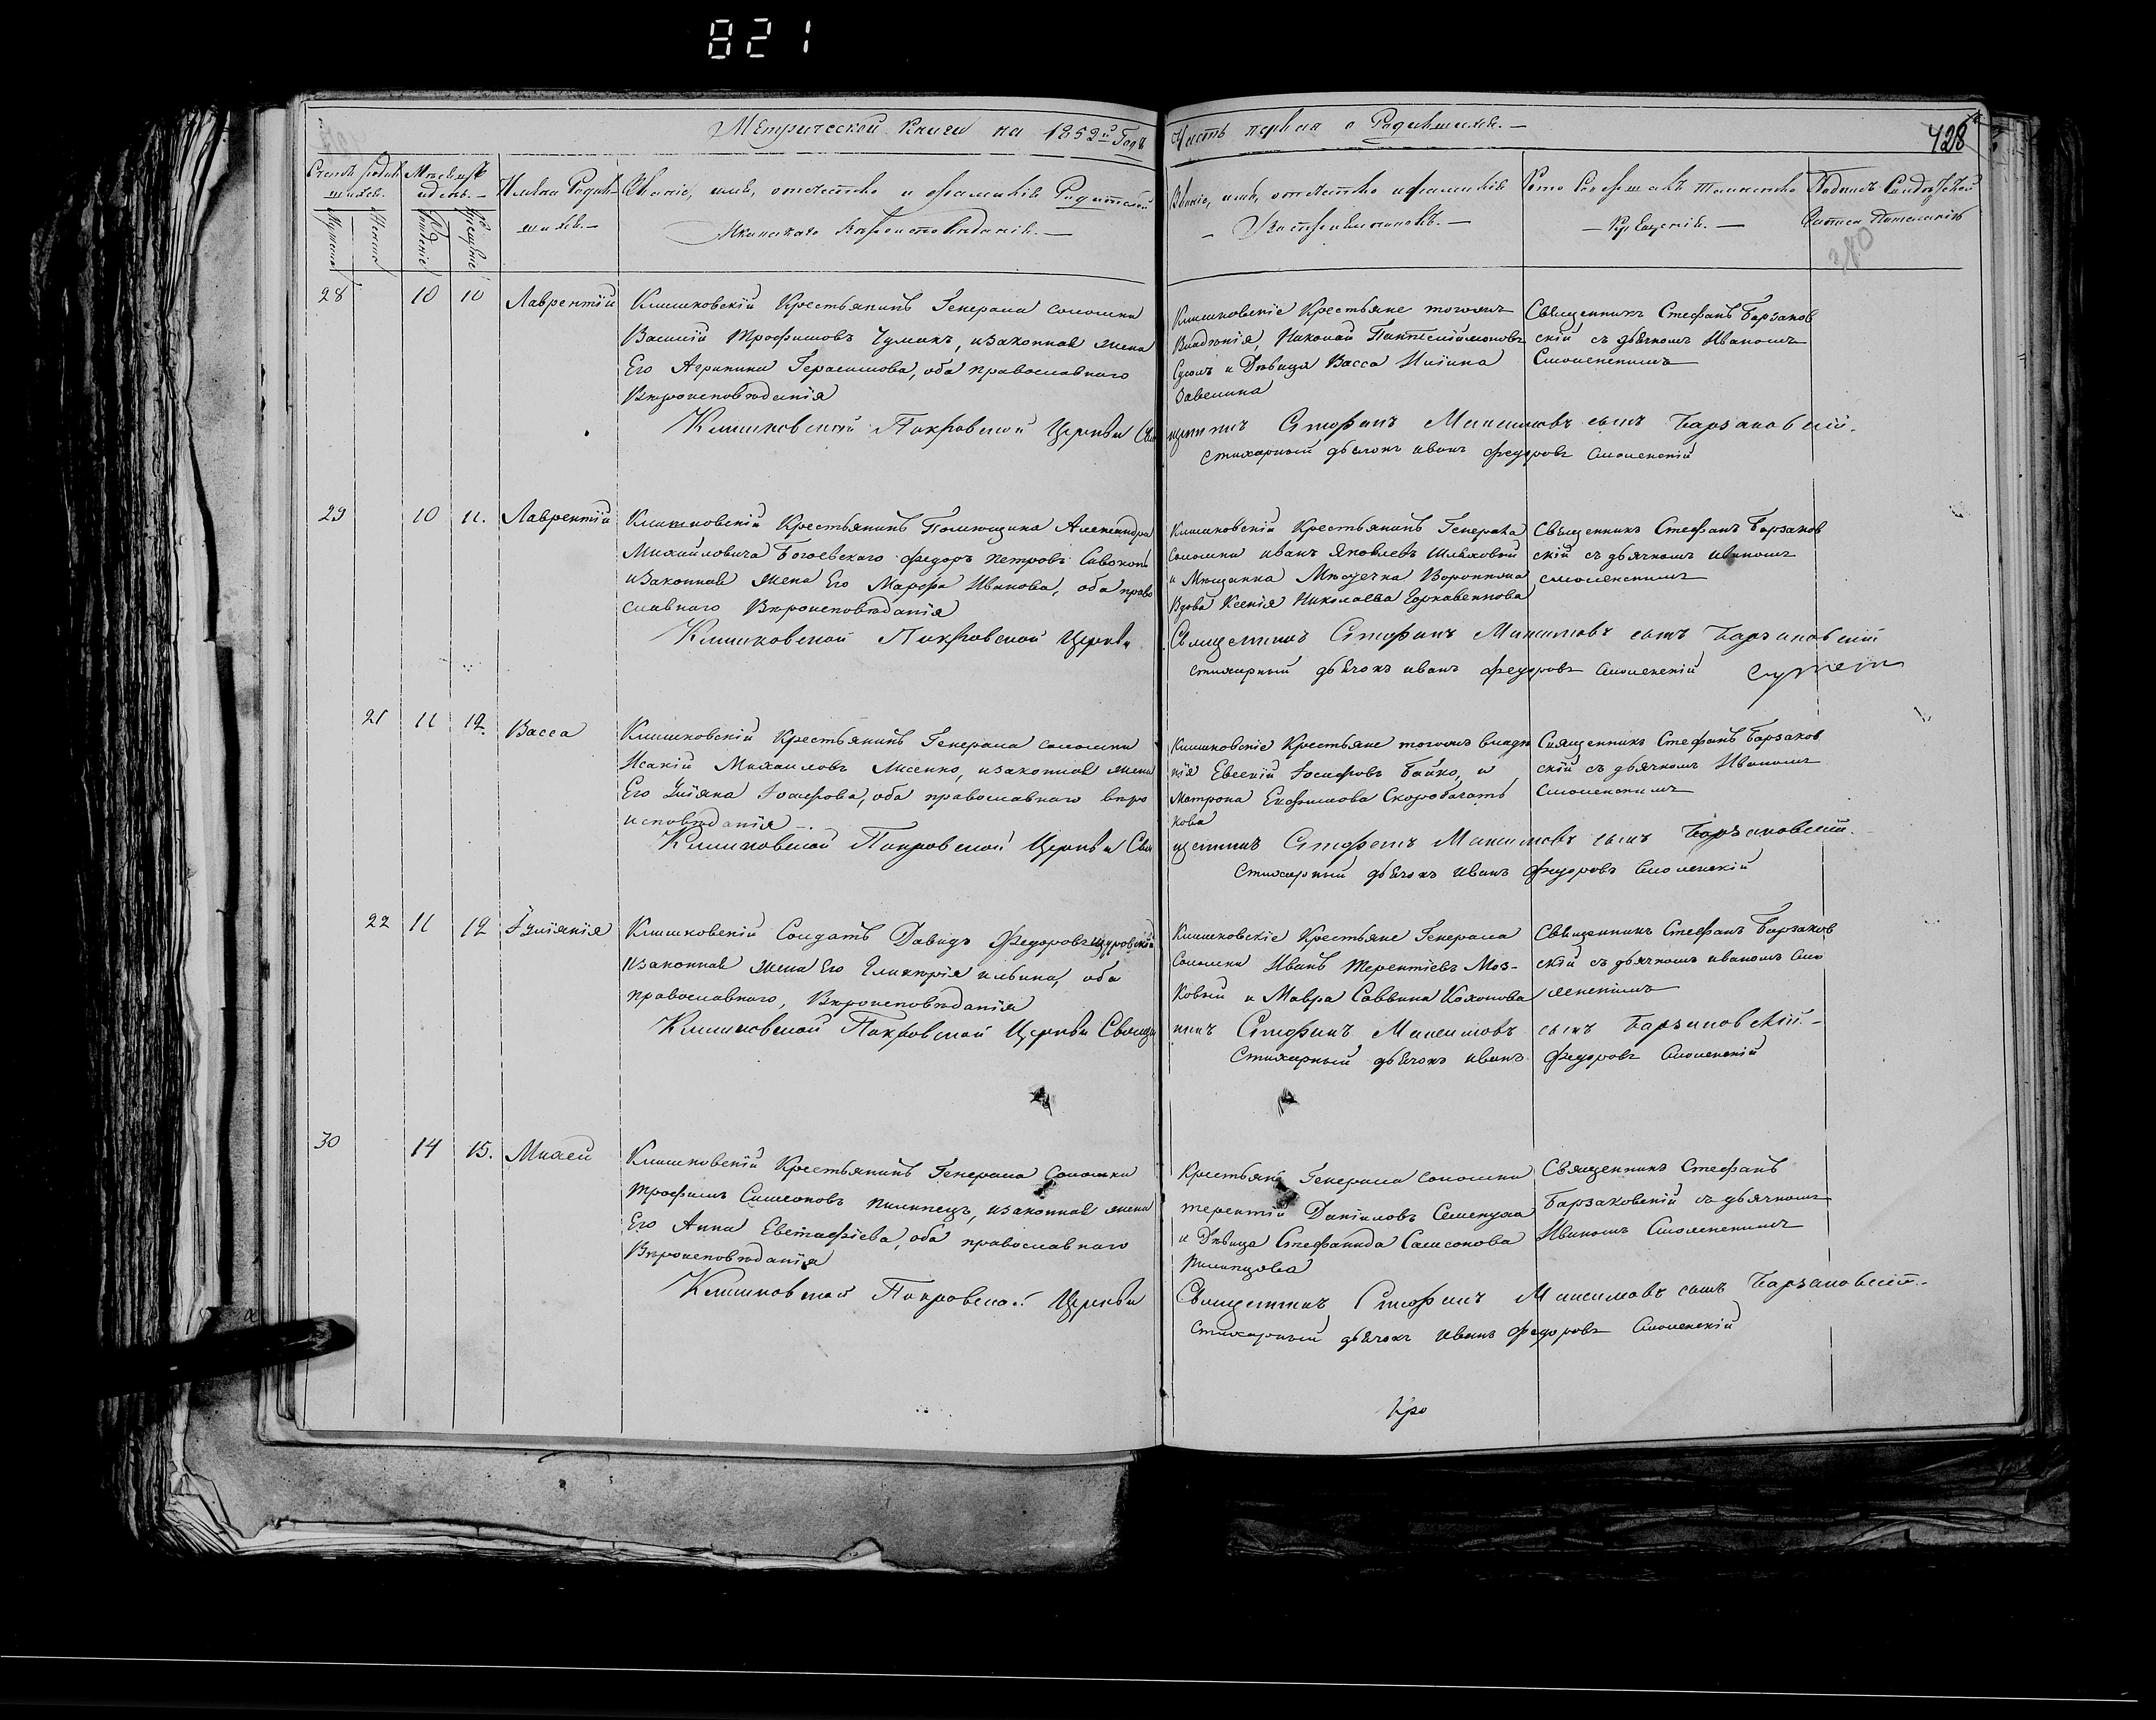 821
Метрической Книги на 1852й Годъ
Часть первая о Родившихся.
428
Счетъ родив
шихся.
Мѣсяцъ
и день.
Имена Родив
шихся.
Званіе, имя, отчество и фамилія Родителей
и какаго вѣроисповѣданія.
Званіе, имя, отчество и фамилія
Воспріемниковъ.
Кто Совершалъ Таинство
Крещенія.
Мужеска
Женска
Рожденіе
Крещеніе
380
28 10 10 Лаврентій
Клишковскій Крестьянинъ Генерала Соломки
Василій Трофимовъ Чумакъ, изаконная жена
Его Агрипина Герасимова, оба православнаго
Вѣроисповѣданія
Клишковскіе Крестьяне тогожъ
Владѣнія, Николай
и Дѣвица Васса Иліина
Завелина
Священникъ Стефанъ Барзаков
скій съ дьячкомъ Иваномъ
Смоленскимъ
Клишковской Покровской Церкви Свя
щенникъ Стефанъ Максимовъ сынъ Барзаковскій.
Стихарный дьячокъ иванъ федоровъ Смоленскій
29 10 11. Лаврентій
Клишковскій Крестьянинъ Помѣщика Александра
Михайловича Богаевскаго федоръ петровъ Савоконь
изаконная жена Его Марфа Иванова, оба право
славнаго Вѣроисповѣданія
Клишковскій Крестьянинъ Генерала
Соломки иванъ Яковлевъ Шляховый
и Мещанка Мѣстечка Воронежа
Вдова Ксенія Николаева
Священникъ Стефанъ Барзаков
скій съ дьячкомъ иваномъ
смоленскимъ
Клишковской Покровской Церкви
Священникъ Стефанъ Максимовъ сынъ Барзаковскій
стихарный дьячокъ иванъ федоровъ Смоленскій
21 11 12. Васса
Клишковскій Крестьянинъ Генерала соломки
Исакій Михаиловъ Лисенко, изаконная жена
Его Уліяна Іосифова, оба православнаго вѣро
исповѣданія.
Клишковскіе Крестьяне тогожъ владѣ
нія Евсевій Іосифовъ Бойко, и
Матрона Ефимова Скоробагать
кова
Священникъ Стефанъ Барзаков
скій съ дьячкомъ Иваномъ
Смоленскимъ
Клишковской Покровской Церкви Свя
щенникъ Стефанъ Максимовъ сынъ Барзаковскій.
Стихарный дьячокъ иванъ федоровъ Смоленскій
22 11 12 Іуліянія
Клишковскій Солдатъ Давидъ Федоровъ
изаконная жена Его Гликерія ильина, оба
православнаго, Вѣроисповѣданія
Клишковскіе Крестьяне Генерала
Соломки Иванъ Терентіевъ Моз-
ковый и Мавра Саввина Кохонова
Священникъ Стефанъ Барзаков
скій съ дьячкомъ иваномъ Смо
ленскимъ
Клишковской Покровской Церкви Священ
никъ Стефанъ Максимовъ сынъ Барзаковскій.
Стихарный дьячокъ иванъ федоровъ Смоленскій
30 14 15. Михей
Клишковскій Крестьянинъ Генерала Соломки
Трофимъ Самсоновъ пилипецъ, изаконная жена
Его Анна Евстафіева, оба православнаго
Вѣроисповѣданія
Крестьяне Генерала соломки
терентій Даніиловъ Семенуха
и Дѣвица Стефанида Самсонова
Пилипцова
Священникъ Стефанъ
Барзаковскій съ дьячкомъ
Иваномъ Смоленскимъ
Клишковской Покровской Церкви
Священникъ Стефанъ Максимовъ сынъ Барзаковскій.
Стихарный дьячокъ иванъ федоровъ Смоленскій